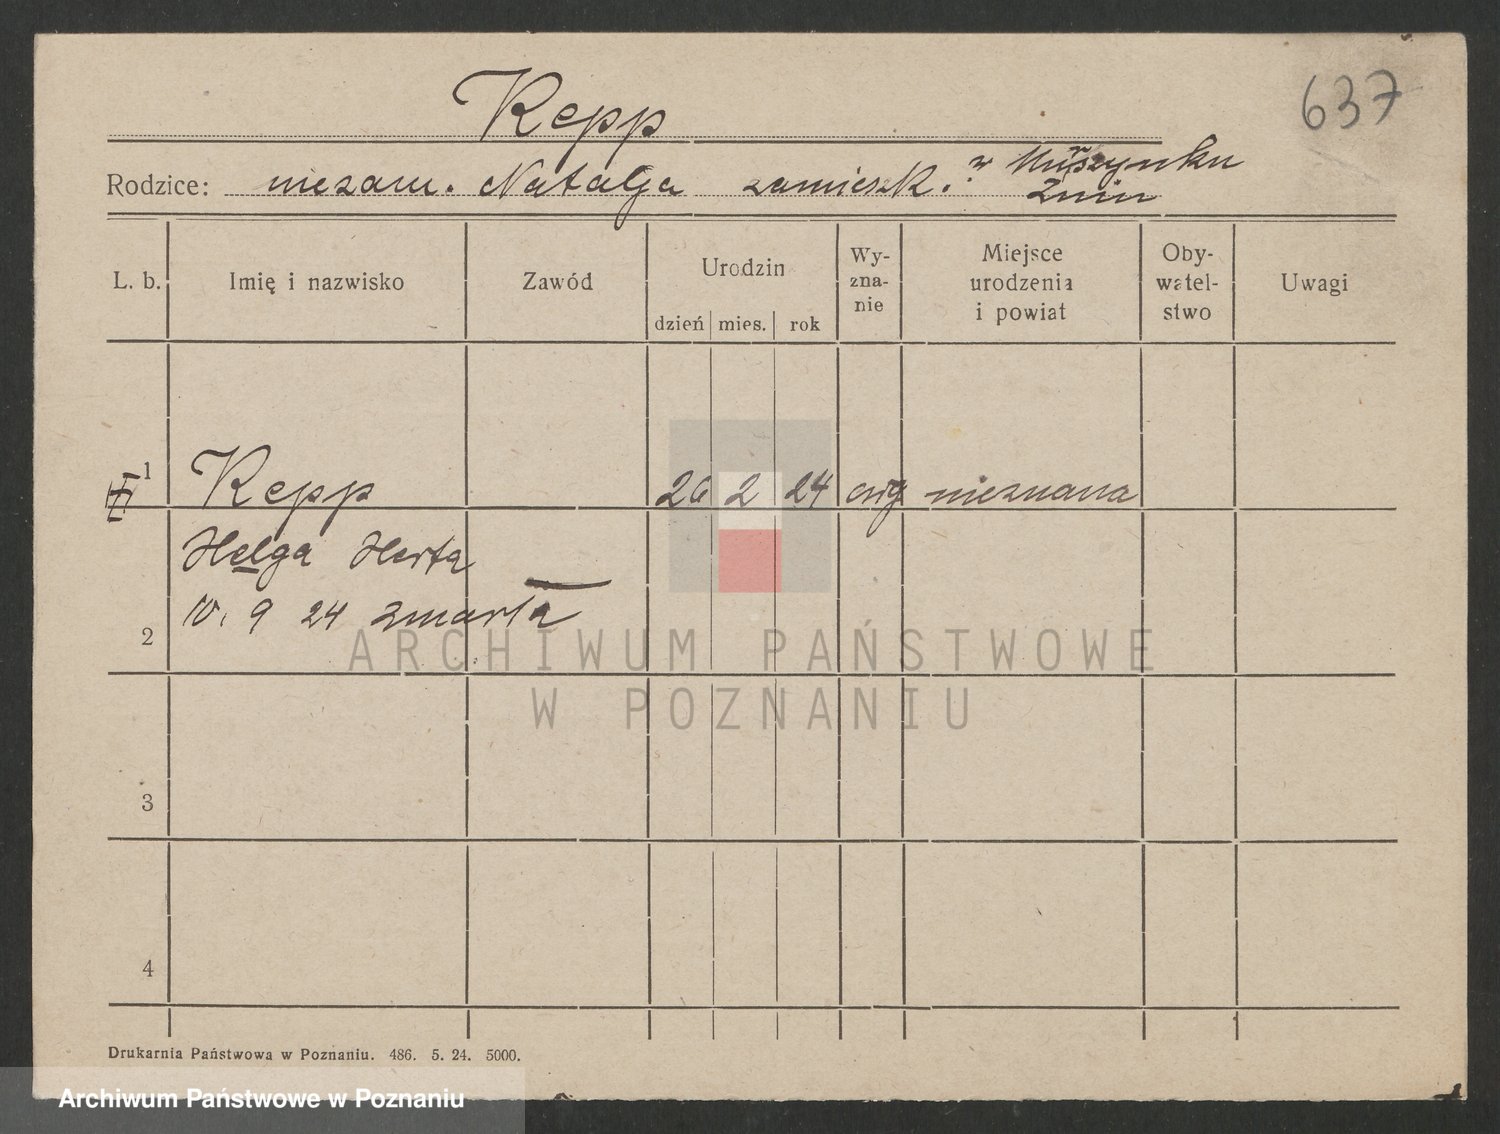 Repp
637
Rodzice: niezam. Natalja zamieszk. w
Żnin
L. b.
Imię i nazwisko
Zawód
Urodzin
dzień mies. rok
Wy-
zna-
nie
Miejsce
urodzenia
i powiat
Oby-
watel-
stwo
Uwagi
1 Repp 26 2 24 ewg nieznana
Helga Herta
10. 9 24 zmarła
2
3
4
ARCHIWUM PAŃSTWOWE
W POZNANIU
Drukarnia Państwowa w Poznaniu. 486. 5. 24. 5000.
Archiwum Państwowe w Poznaniu